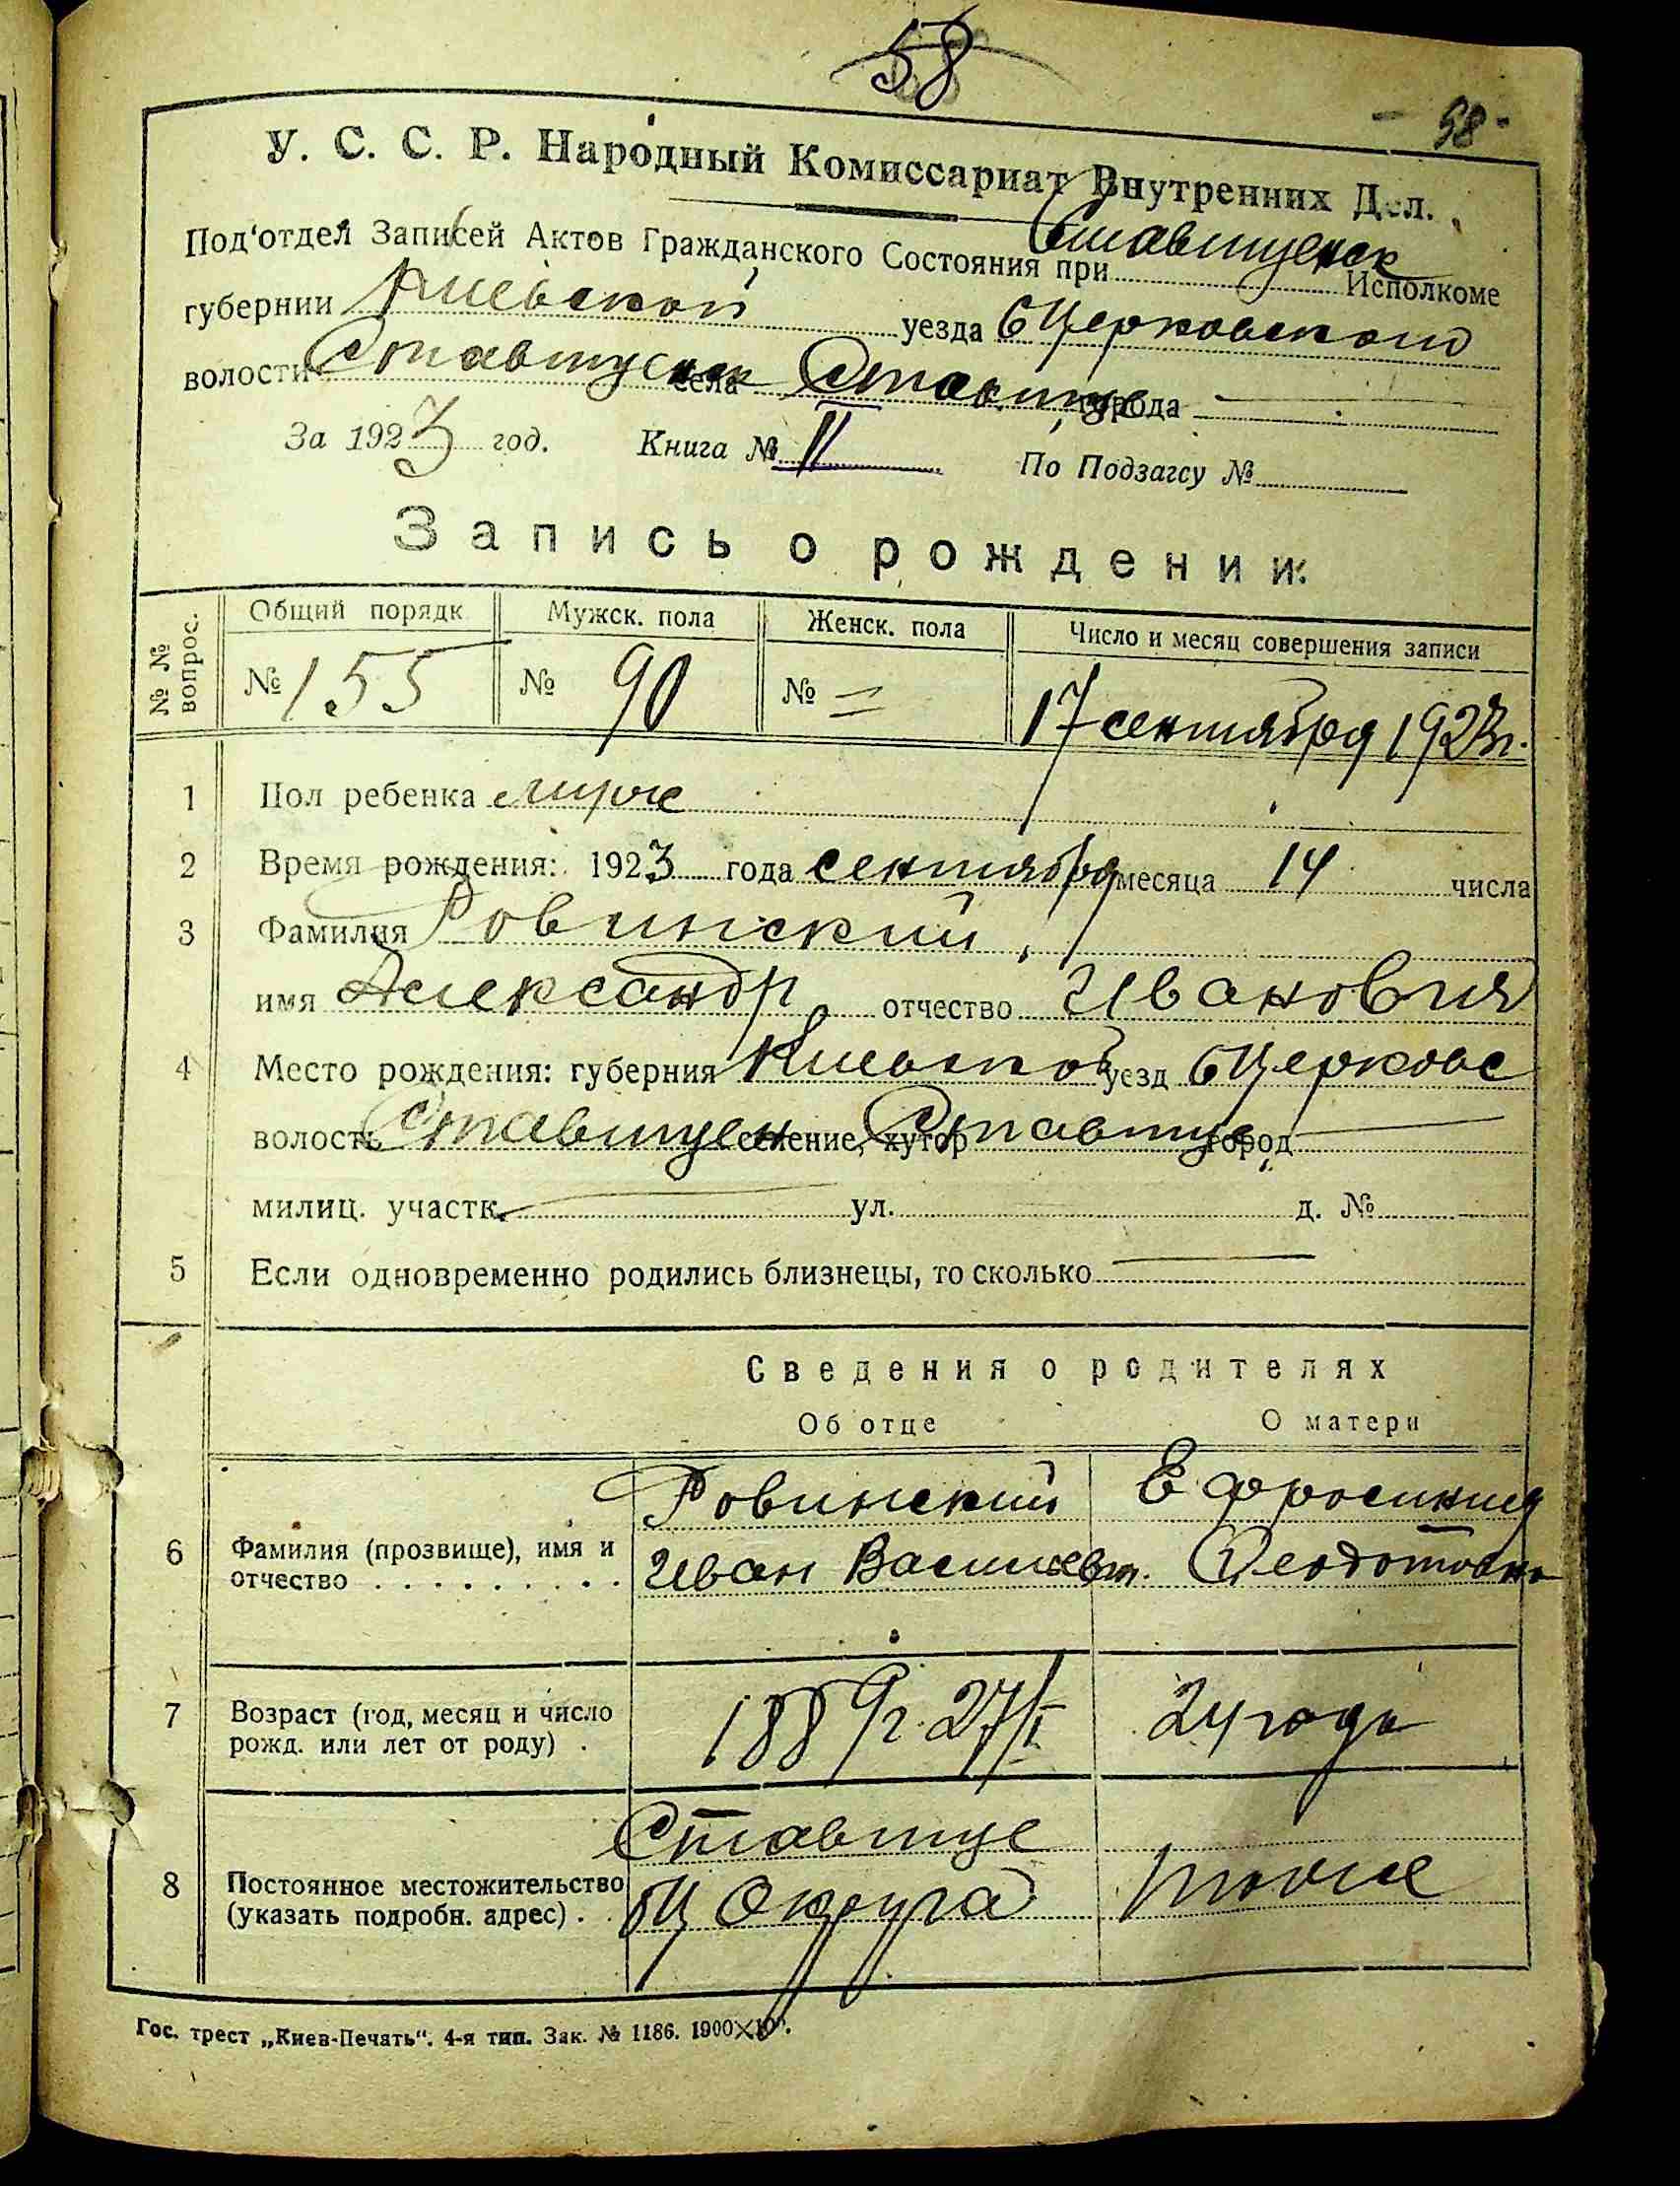 58
58
У. С. С. Р. Народный Комиссариат Внутренних Дел.
Под'отдел Записей Актов Гражданского Состояния при Ставищенск Исполкоме
губернии Киевской уезда бЦерковского
волости Ставищенск села Ставище города —
За 1923 год. Книга № II По Подзагсу №
Запись о рождении.
№ № вопрос. Общий порядк Мужск. пола Женск. пола Число и месяц совершения записи
№ 155 № 90 № = 17 сентября 1923г.
1 Пол ребенка муж
2 Время рождения: 1923 года сентября месяца 14 числа
3 Фамилия Ровинский
имя Александр отчество Иванович
4 Место рождения: губерния Киевской уезд бЦерковс
волость Ставищен селение, хутор Ставище город —
милиц. участк. — ул. д. №
5 Если одновременно родились близнецы, то сколько —
Сведения о родителях
Об отце О матери
Ровинский Ефросиния
6 Фамилия (прозвище), имя и отчество . . . . . . . . . . Иван Васильев. Феодотовна
7 Возраст (год, месяц и число рожд. или лет от роду) . 1889г. 27/I 24 года
Ставище
8 Постоянное местожительство (указать подробн. адрес) . . бЦ Округа тоже
Гос. трест „Киев-Печать“. 4-я тип. Зак. № 1186. 1900×100.